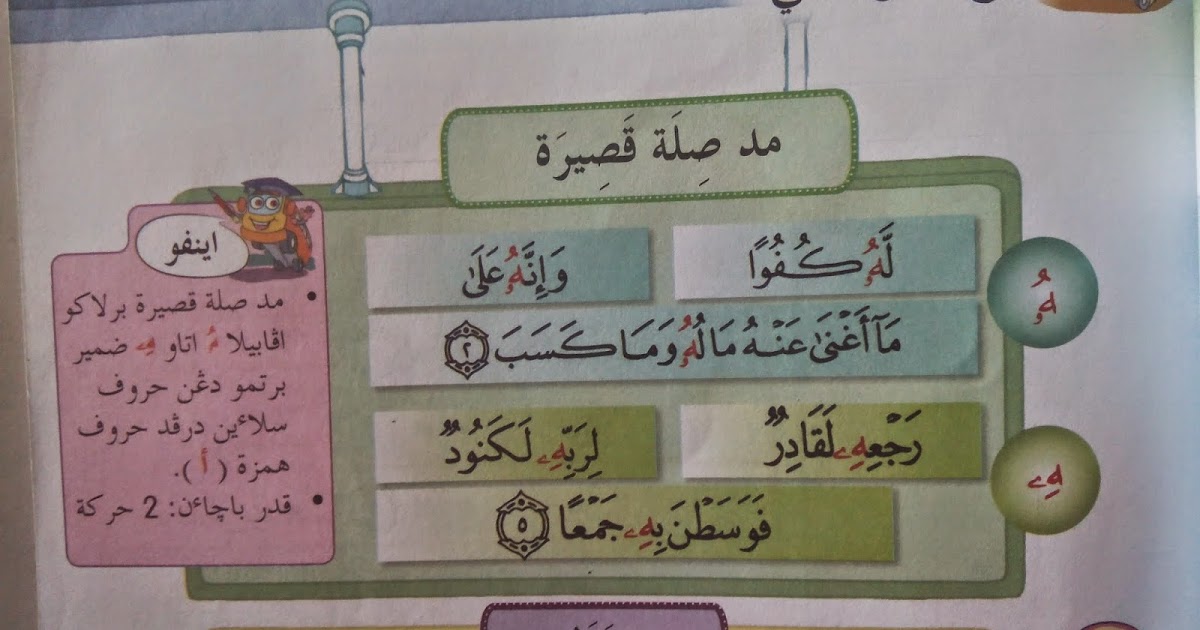 مد صِلَة قَصِيرَة
لَّهُۥ كُفُوًا
وَإِنَّهُۥ عَلَىٰ
هُۥ
مَآ أَغْنَىٰ عَنْهُ مَالُهُۥ وَمَا كَسَبَ ٢
رَجْعِهِۦ لَقَادِرٌ
لِرَبِّهِۦ لَكَنُودٌ
هِۦ
فَوَسَطْنَ بِهِۦ جَمْعًا ٥
اينفو
• مد صلة قصيرة برلاكو
اڤابيلا هُ اتاو هِۦ ضمير
برتمو دڠن حروف
سلاءين درڤد حروف
همزة (أ).
• قدر باچاءن: 2 حركة